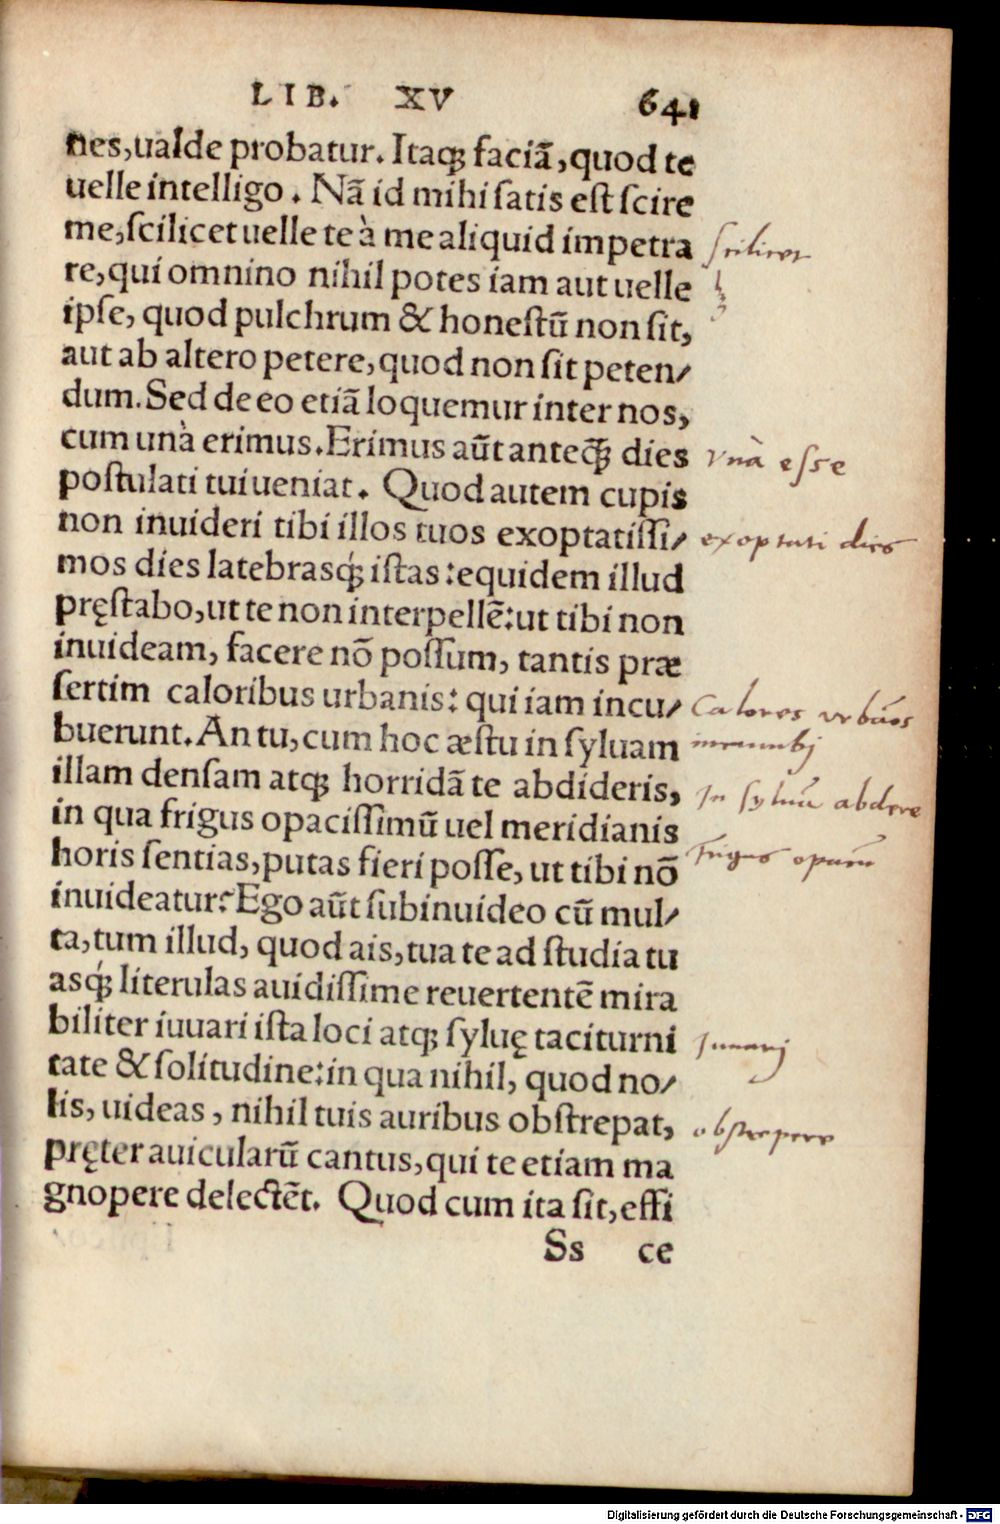 LIB. XV 641
nes, ualde probatur. Itaq; faciā, quod te
uelle intelligo. Nā id mihi satis est scire
me, scilicet uelle te à me aliquid impetra
re, qui omnino nihil potes iam aut uelle
ipse, quod pulchrum & honestū non sit,
aut ab altero petere, quod non sit peten/
dum. Sed de eo etiā loquemur inter nos,
cum unà erimus. Erimus aūt anteq̄; dies
postulati tui ueniat. Quod autem cupis
non inuideri tibi illos tuos exoptatissi/
mos dies latebrasq́; istas: equidem illud
pręstabo, ut te non interpellē: ut tibi non
inuideam, facere nō possum, tantis præ
sertim caloribus urbanis: qui iam incu/
buerunt. An tu, cum hoc æstu in syluam
illam densam atq; horridā te abdideris,
in qua frigus opacissimū uel meridianis
horis sentias, putas fieri posse, ut tibi nō
inuideatur? Ego aūt subinuideo cū mul/
ta, tum illud, quod ais, tua te ad studia tu
asq́; literulas auidissime reuertentē mira
biliter iuuari ista loci atq; syluę taciturni
tate & solitudine: in qua nihil, quod no/
lis, uideas, nihil tuis auribus obstrepat,
pręter auicularū cantus, qui te etiam ma
gnopere delectēt. Quod cum ita sit, effi
Ss ce
scilicet
Vnà esse
exoptati dies
Calores vrbanos
incumbi
In syluā abdere
Frigus opacū
Juuari
obstrepere
Digitalisierung gefördert durch die Deutsche Forschungsgemeinschaft - DFG